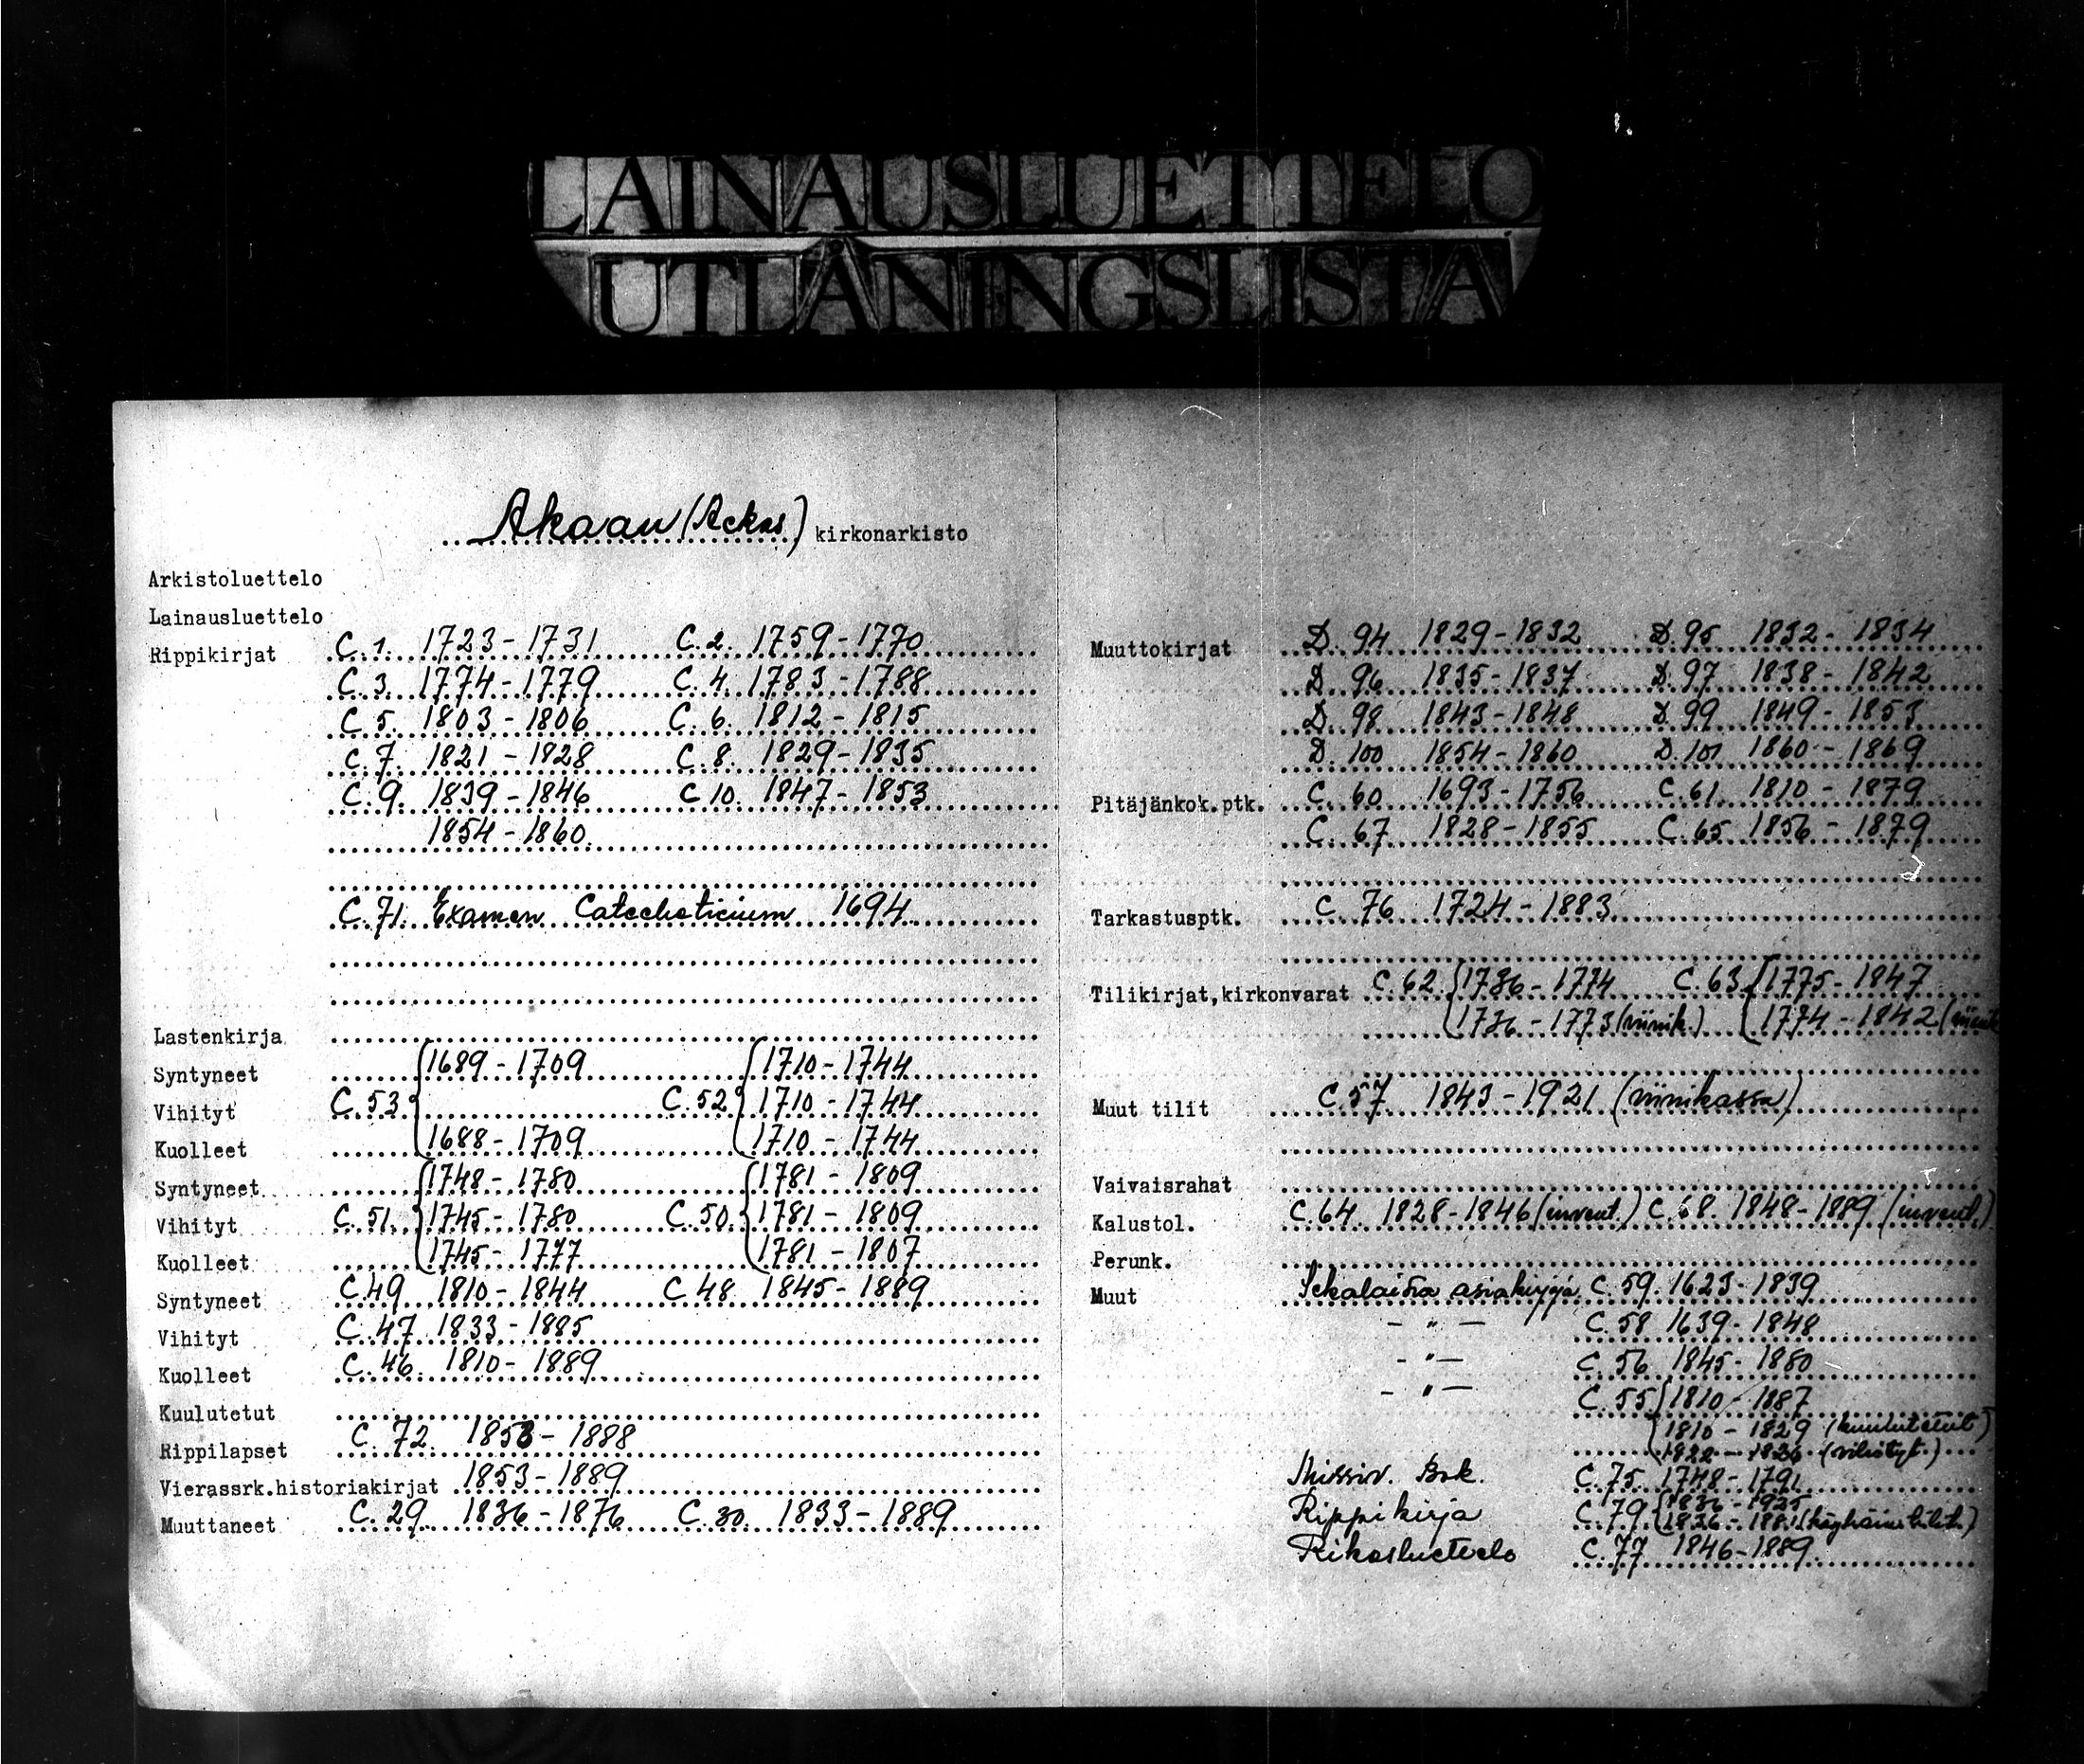 LAINAUSLUETTELO
UTLÅNINGSLISTA
Akaan (Ackas) kirkonarkisto
Arkistoluettelo
Lainausluettelo
Rippikirjat C. 1. 1723-1731 C. 2. 1759-1770
C. 3. 1774-1779 C. 4. 1783-1788
C. 5. 1803-1806 C. 6. 1812-1815
C. 7. 1821-1828 C. 8. 1829-1835
C. 9. 1839-1846 C 10. 1847-1853
1854-1860
C. 71. Examen Catecheticium 1694
Lastenkirja
Syntyneet 1689-1709 1710-1744
Vihityt C. 53 C. 52 1710-1744
Kuolleet 1688-1709 1710-1744
Syntyneet 1748-1780 1781-1809
Vihityt C. 51. 1745-1780 C. 50. 1781-1809
Kuolleet 1745-1777 1781-1807
Syntyneet C. 49 1810-1844 C. 48 1845-1889
Vihityt C. 47 1833-1885
Kuolleet C. 46. 1810-1889
Kuulutetut
Rippilapset C. 72. 1853-1888
Vierassrk.historiakirjat 1853-1889
Muuttaneet C. 29. 1836-1876 C. 30. 1833-1889
Muuttokirjat D. 94 1829-1832 D. 95 1832-1834
D. 96 1835-1837 D. 97 1838-1842
D. 98 1843-1848 D. 99 1849-1853
D. 100 1854-1860 D. 101 1860-1869
Pitäjänkok.ptk. C. 60 1693-1756 C. 61. 1810-1879
C. 67 1828-1855 C. 65 1856-1879
Tarkastusptk. C. 76 1724-1883
Tilikirjat,kirkonvarat C. 62 1736-1774 C. 63 1775-1847
1736-1773 (viinik.) 1774-1842
Muut tilit C. 57 1843-1921 (viinikassa)
Vaivaisrahat
Kalustol. C. 64 1828-1846 (invent.) C. 68. 1848-1889 (invent.)
Perunk.
Muut Sekalaisia asiakirjoja C. 59. 1623-1839
- " - C. 58 1639-1848
- " - C. 56 1845-1880
- " - C. 55 1810-1887
1810-1829 (kuulutetut)
1822-1836 (vihityt)
Missiv. Bok. C. 75 1748-1791
Rippikirja C. 79 1836-1925
Rikosluettelo C. 77 1846-1889